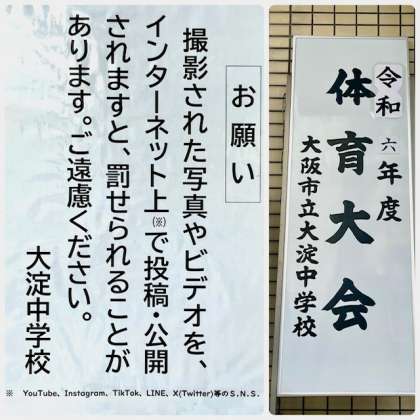 お願い
撮影された写真やビデオを、
インターネット上(※)で投稿・公開
されますと、罰せられることが
あります。ご遠慮ください。
大淀中学校
※ YouTube、Instagram、TikTok、LINE、X(Twitter)等のS.N.S.
令和六年度
体育大会
大阪市立大淀中学校